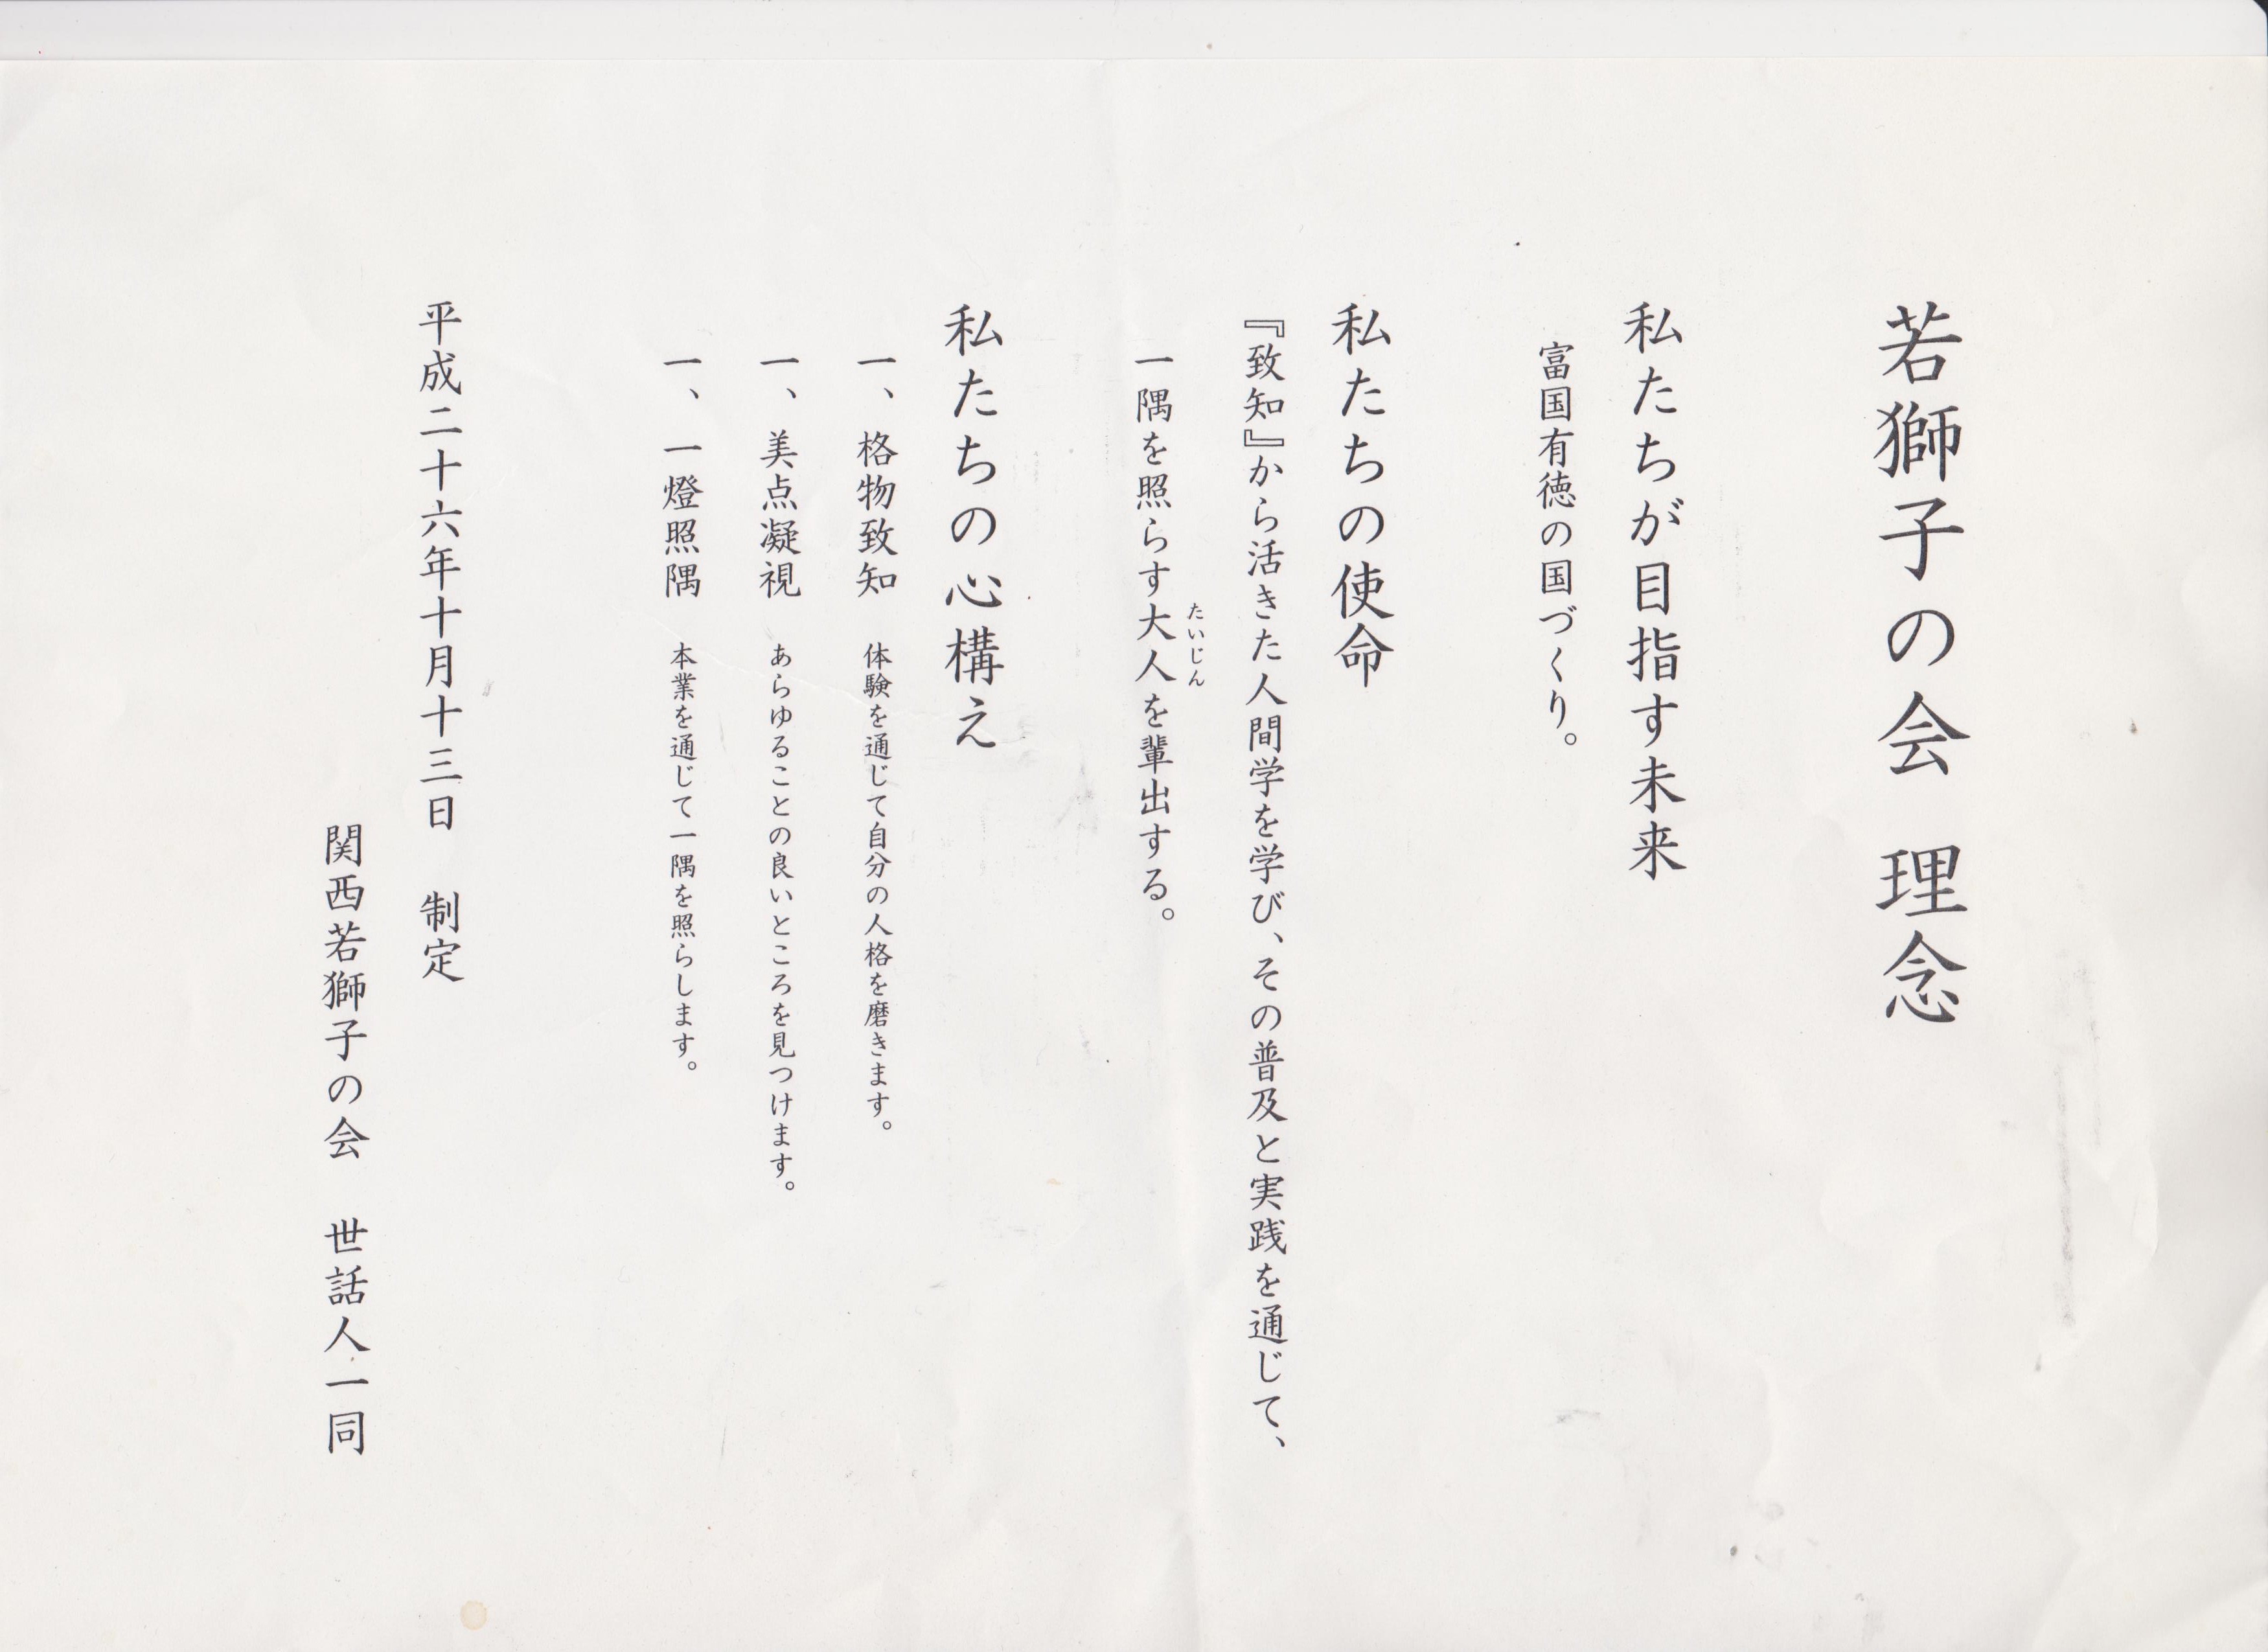 若獅子の会　理念
私たちが目指す未来
富国有徳の国づくり。
私たちの使命
『致知』から活きた人間学を学び、その普及と実践を通じて、
たいじん
一隅を照らす大人を輩出する。
私たちの心構え
一、格物致知　体験を通じて自分の人格を磨きます。
一、美点凝視　あらゆることの良いところを見つけます。
一、一燈照隅　本業を通じて一隅を照らします。
平成二十六年十月十三日　制定
関西若獅子の会　世話人一同